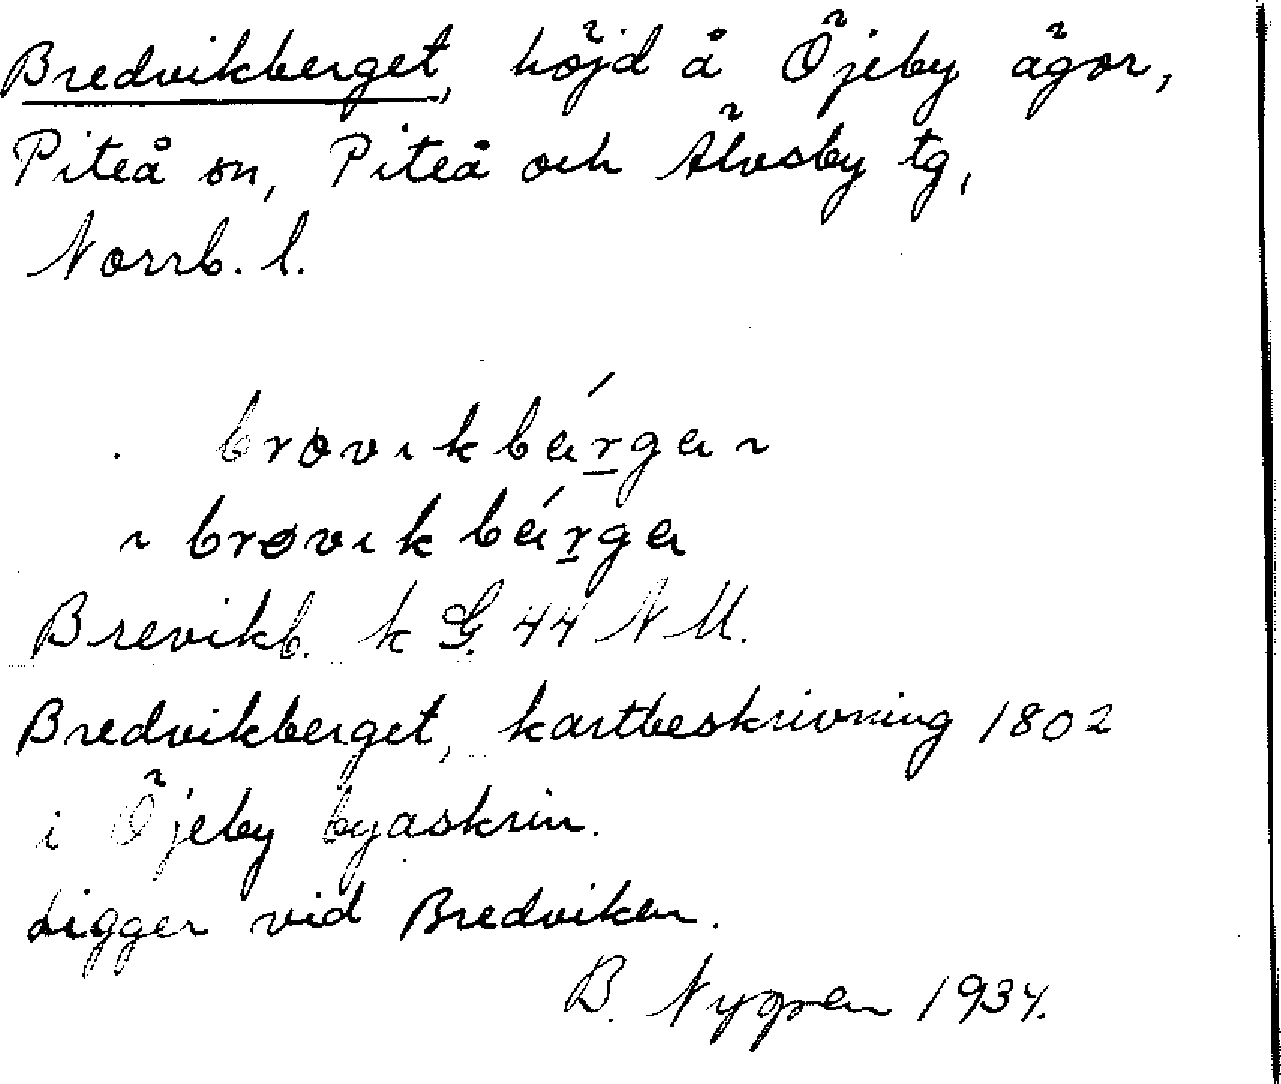 Bredvikberget, höjd å Öjeby ägor,
Piteå sn, Piteå och Älvsby tg,
Norrb. l.
brøvɩkbárga ~
~ brøvɩkbárga
Brevikb. k G. 44 N M.
Bredvikberget, kartbeskrivning 1802
i Öjeby byaskrin.
Ligger vid Bredviken.
B. Nygren 1934.